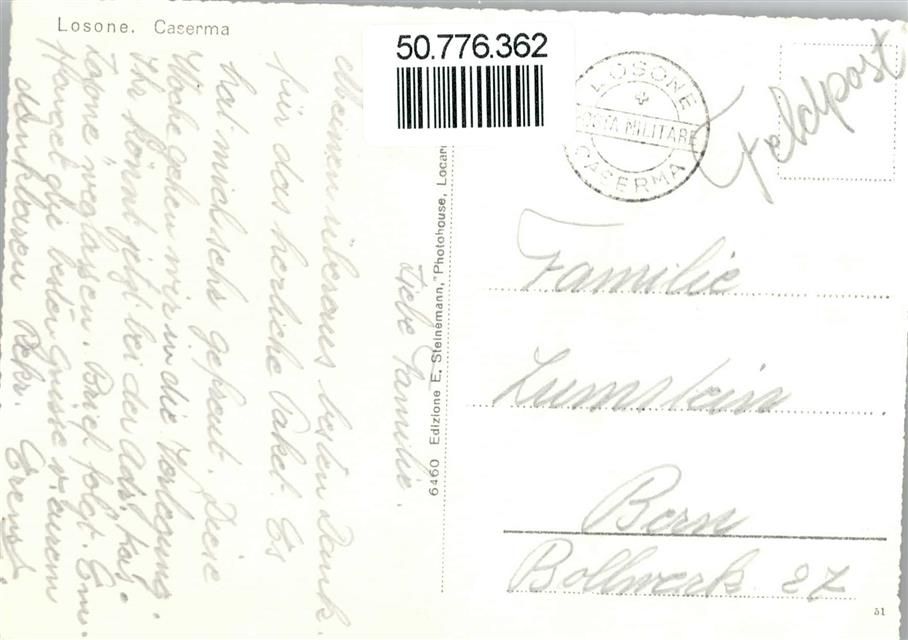 Losone. Caserma
50.776.362
LOSONE
POSTA MILITARE
CASERMA
Feldpost
Liebe Familie.
Meinen überaus besten Dank.
für das herrliche Paket. Es
hat mich sehr gefreut. Diese
Woche gehn wir in die Verlegung.
Ihr könnt jetzt bei der Adr.
weglassen. Brief folgt. Em-
die besten Grüsse v. eurem
dankbaren Rekr.
6460 Edizione E. Steinemann, "Photohouse, Locar
Familie
Lumstein
Bern
Bollwerk 27
51